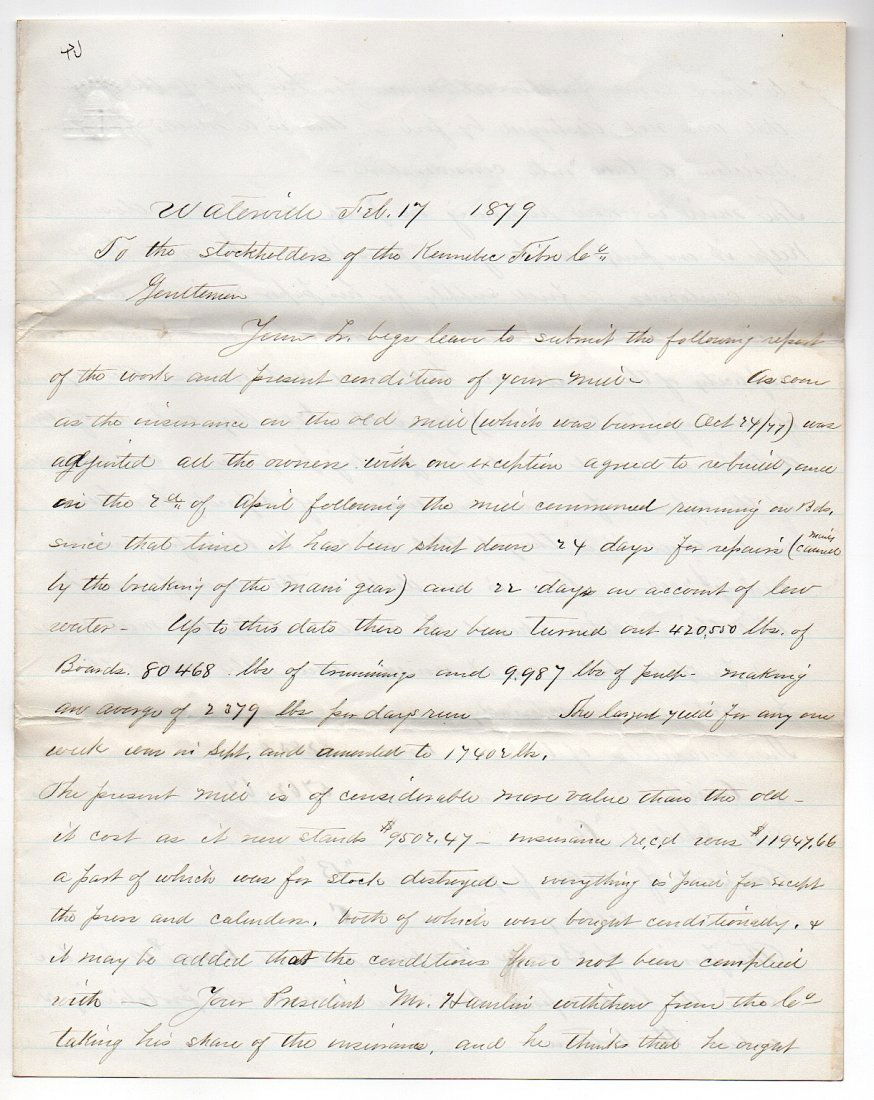 Waterville Feb. 17 1879
To the stockholders of the Kennebec Fibre Co.
Gentlemen
Your Tr. begs leave to submit the following report
of the work and present condition of your mill - As soon
as the insurance on the old mill (which was burned Oct 24/77) was
adjusted all the owners with one exception agreed to rebuild, and
on the 2d of April following the mill commenced running on Bds.
since that time it has been shut down 24 days for repairs (mainly caused
by the breaking of the main gear) and 22 days on account of low
water - Up to this date there has been turned out 420,550 lbs. of
Boards. 80468 lbs of trimmings and 9,987 lbs of pulp - making
an average of 2379 lbs per days run The largest yield for any one
week was in Sept. and amounted to 17402 lbs.
The present mill is of considerable more value than the old -
it cost as it now stands $9502.47 - insurance rec,d was $11947.66
a part of which was for stock destroyed - everything is paid for except
the press and calenders, both of which were bought conditionally, &
it may be added that the conditions have not been complied
with - Your President Mr. Hamlin withdrew from the Co
taking his share of the insurance, and he thinks that he ought